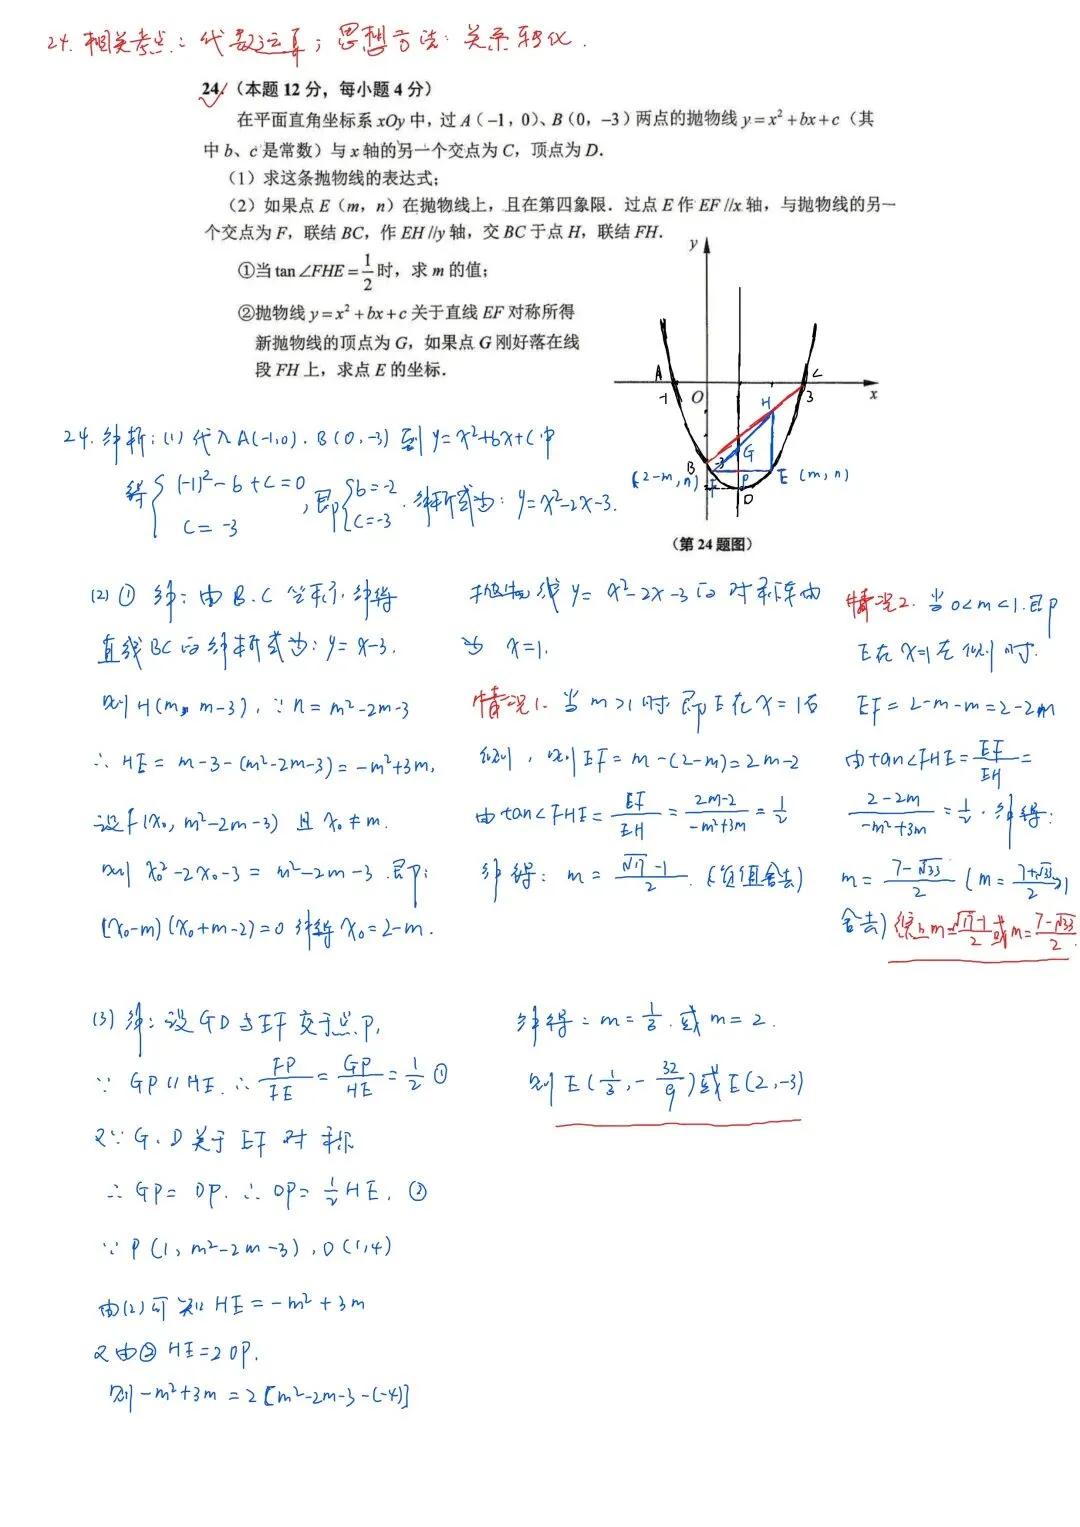 24. 相关考点：代数运算；思想方法：关系转化.
24.（本题 12 分，每小题 4 分）
在平面直角坐标系 xOy 中，过 A（−1，0）、B（0，−3）两点的抛物线 y=x²+bx+c（其
中 b、c 是常数）与 x 轴的另一个交点为 C，顶点为 D.
（1）求这条抛物线的表达式；
（2）如果点 E（m，n）在抛物线上，且在第四象限．过点 E 作 EF//x 轴，与抛物线的另一
个交点为 F，联结 BC，作 EH//y 轴，交 BC 于点 H，联结 FH.
①当 tan∠FHE=1/2 时，求 m 的值；
②抛物线 y=x²+bx+c 关于直线 EF 对称所得
新抛物线的顶点为 G，如果点 G 刚好落在线
段 FH 上，求点 E 的坐标.
y
A
-1
O
C
3
x
H
B
-3
G
(2-m, n)
F
P
E (m, n)
D
（第 24 题图）
24. 解析: (1) 代入A(-1,0). B(0,-3) 到 y=x²+bx+c中
得{(-1)²-b+c=0, c=-3, 即{b=-2 c=-3. 解析式为: y=x²-2x-3.
(2) ① 解: 由 B.C 坐标, 解得
直线BC的解析式为: y=x-3.
则 H(m, m-3), ∵ n=m²-2m-3
∴ HE = m-3-(m²-2m-3) = -m²+3m,
设F(x₀, m²-2m-3) 且 x₀≠m.
则 x₀²-2x₀-3 = m²-2m-3 即:
(x₀-m)(x₀+m-2)=0 解得 x₀=2-m.
抛物线 y= x²-2x-3 的对称轴
为 x=1.
情况1. 当 m>1 时 即 E 在 x=1右
侧, 则EF= m-(2-m)=2m-2
由 tan∠FHE= EF/EH = 2m-2/-m²+3m = 1/2
解得: m= √17-1/2. (负值舍去)
情况2. 当 0<m<1. 即
E在 x=1 左侧时.
EF= 2-m-m=2-2m
由 tan∠FHE= EF/EH =
2-2m/-m²+3m = 1/2. 解得:
m= 7-√33/2 (m= 7+√33/2
舍去) 综上 m=√17-1/2 或 m= 7-√33/2.
(3) 解: 设 GD 与 EF 交于点 P,
∵ GP // HE. ∴ FP/FE = GP/HE = 1/2 ①
又∵ G、D 关于 EF 对称
∴ GP= DP. ∴ DP= 1/2 HE. ②
∵ P (1, m²-2m-3), D(1,4)
由(2)可知 HE = -m²+3m
又由② HE=2DP.
则 -m²+3m = 2[m²-2m-3-(-4)]
解得: m= 1/3. 或 m= 2.
则 E(1/3, -32/9) 或 E(2,-3)